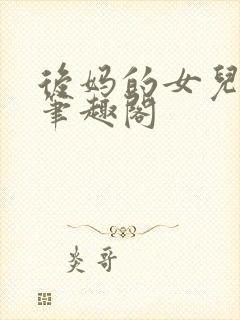 後妈的女兒
筆趣閣
炎哥